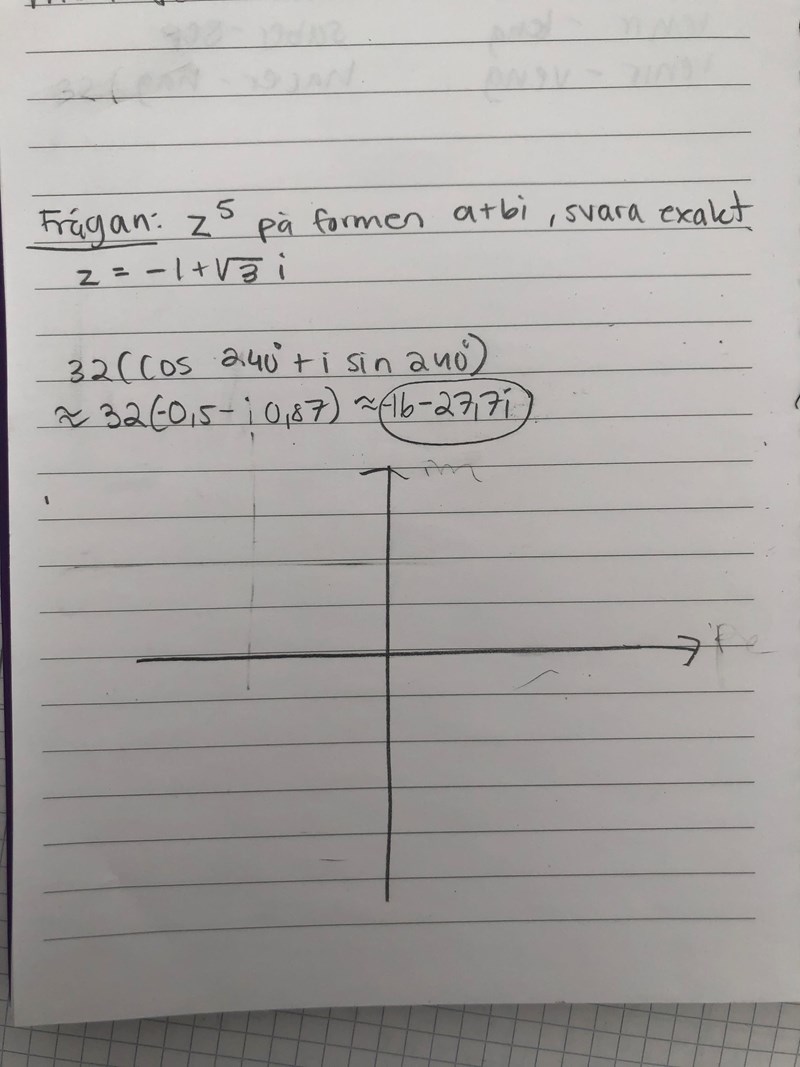 Frågan: z⁵ på formen a+bi, svara exakt
z = -1+√3 i
32(cos 240° + i sin 240°)
≈ 32(-0,5 - i 0,87) ≈ -16-27,7i
im
Re